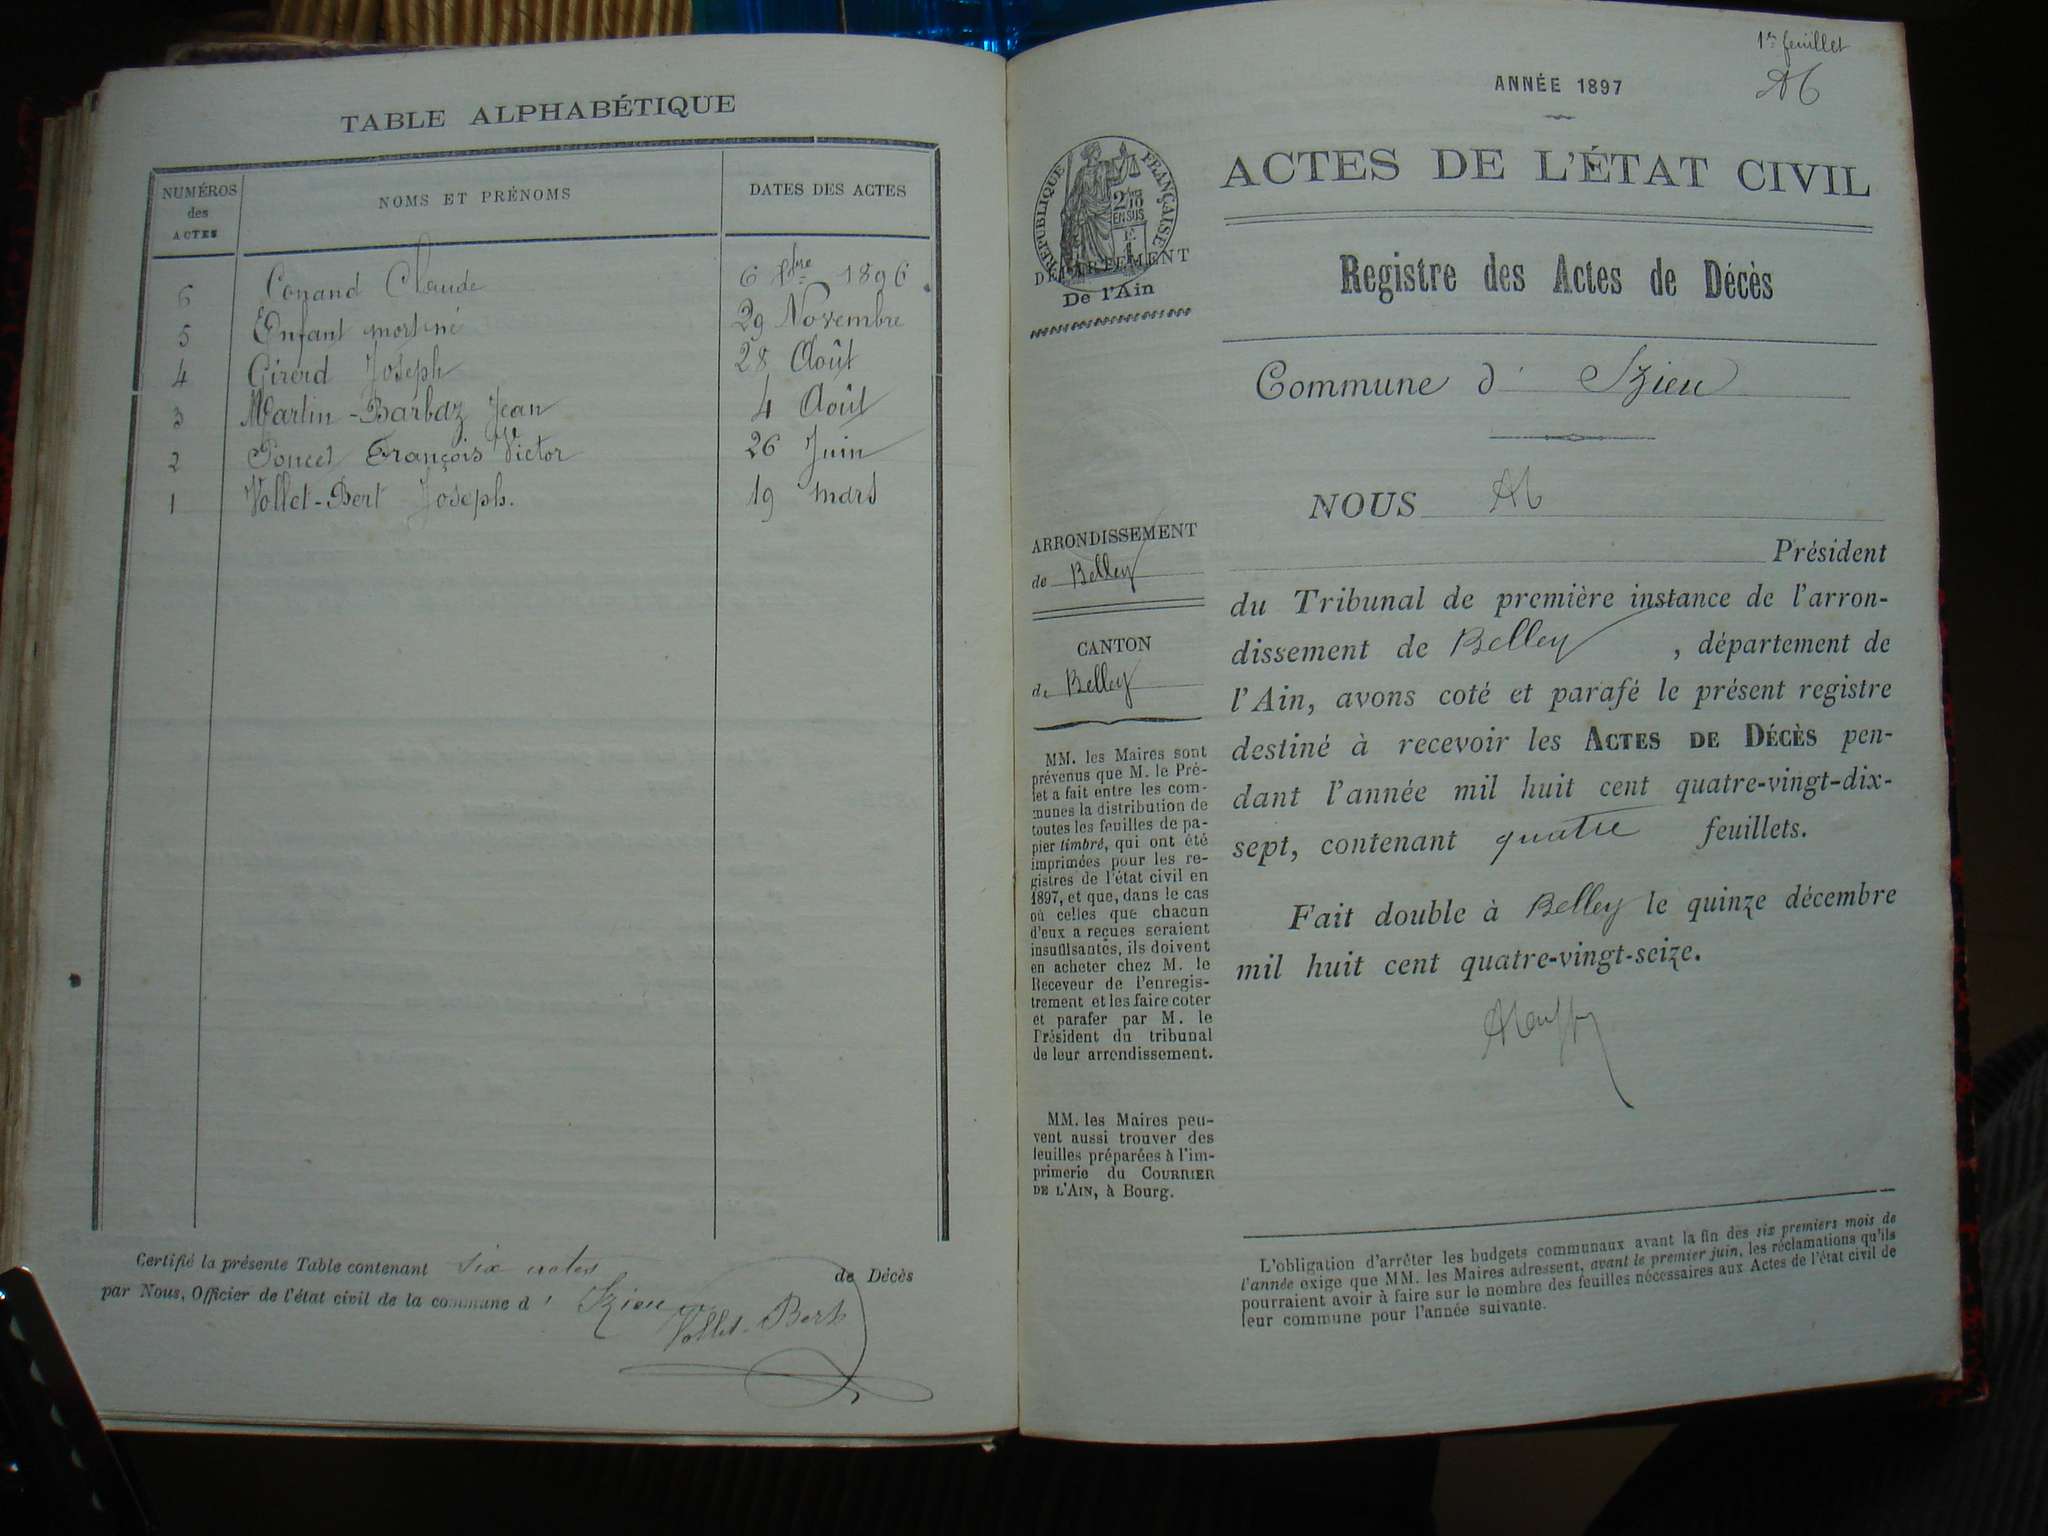 TABLE ALPHABÉTIQUE
NUMÉROS
des
ACTES
NOMS ET PRÉNOMS
DATES DES ACTES
6 Conand Claude 6 Xbre 1896.
5 Enfant mort-né 29 Novembre
4 Girerd Joseph 28 Août
3 Martin-Barbaz Jean 4 Août
2 Poncet François Victor 26 Juin
1 Vollet-Bert Joseph. 19 mars
Certifié la présente Table contenant six actes de Décès
par Nous, Officier de l'état civil de la commune d' Izieu
Vollet-Bert
1er feuillet
ANNÉE 1897
RÉPUBLIQUE FRANÇAISE
2/10
EN SUS
DÉPARTEMENT
De l'Ain
ACTES DE L'ÉTAT CIVIL
Registre des Actes de Décès
Commune d' Izieu
ARRONDISSEMENT
de Belley
CANTON
de Belley
MM. les Maires sont
prévenus que M. le Pré-
fet a fait entre les com-
munes la distribution de
toutes les feuilles de pa-
pier timbré, qui ont été
imprimées pour les re-
gistres de l'état civil en
1897, et que, dans le cas
où celles que chacun
d'eux a reçues seraient
insuffisantes, ils doivent
en acheter chez M. le
Receveur de l'enregis-
trement et les faire coter
et parafer par M. le
Président du tribunal
de leur arrondissement.
MM. les Maires peu-
vent aussi trouver des
feuilles préparées à l'im-
primerie du COURRIER
DE L'AIN, à Bourg.
NOUS
Président
du Tribunal de première instance de l'arron-
dissement de Belley, département de
l'Ain, avons coté et parafé le présent registre
destiné à recevoir les ACTES DE DÉCÈS pen-
dant l'année mil huit cent quatre-vingt-dix-
sept, contenant quatre feuillets.
Fait double à Belley le quinze décembre
mil huit cent quatre-vingt-seize.
L'obligation d'arrêter les budgets communaux avant la fin des six premiers mois de
l'année exige que MM. les Maires adressent, avant le premier juin, les réclamations qu'ils
pourraient avoir à faire sur le nombre des feuilles nécessaires aux Actes de l'état civil de
leur commune pour l'année suivante.